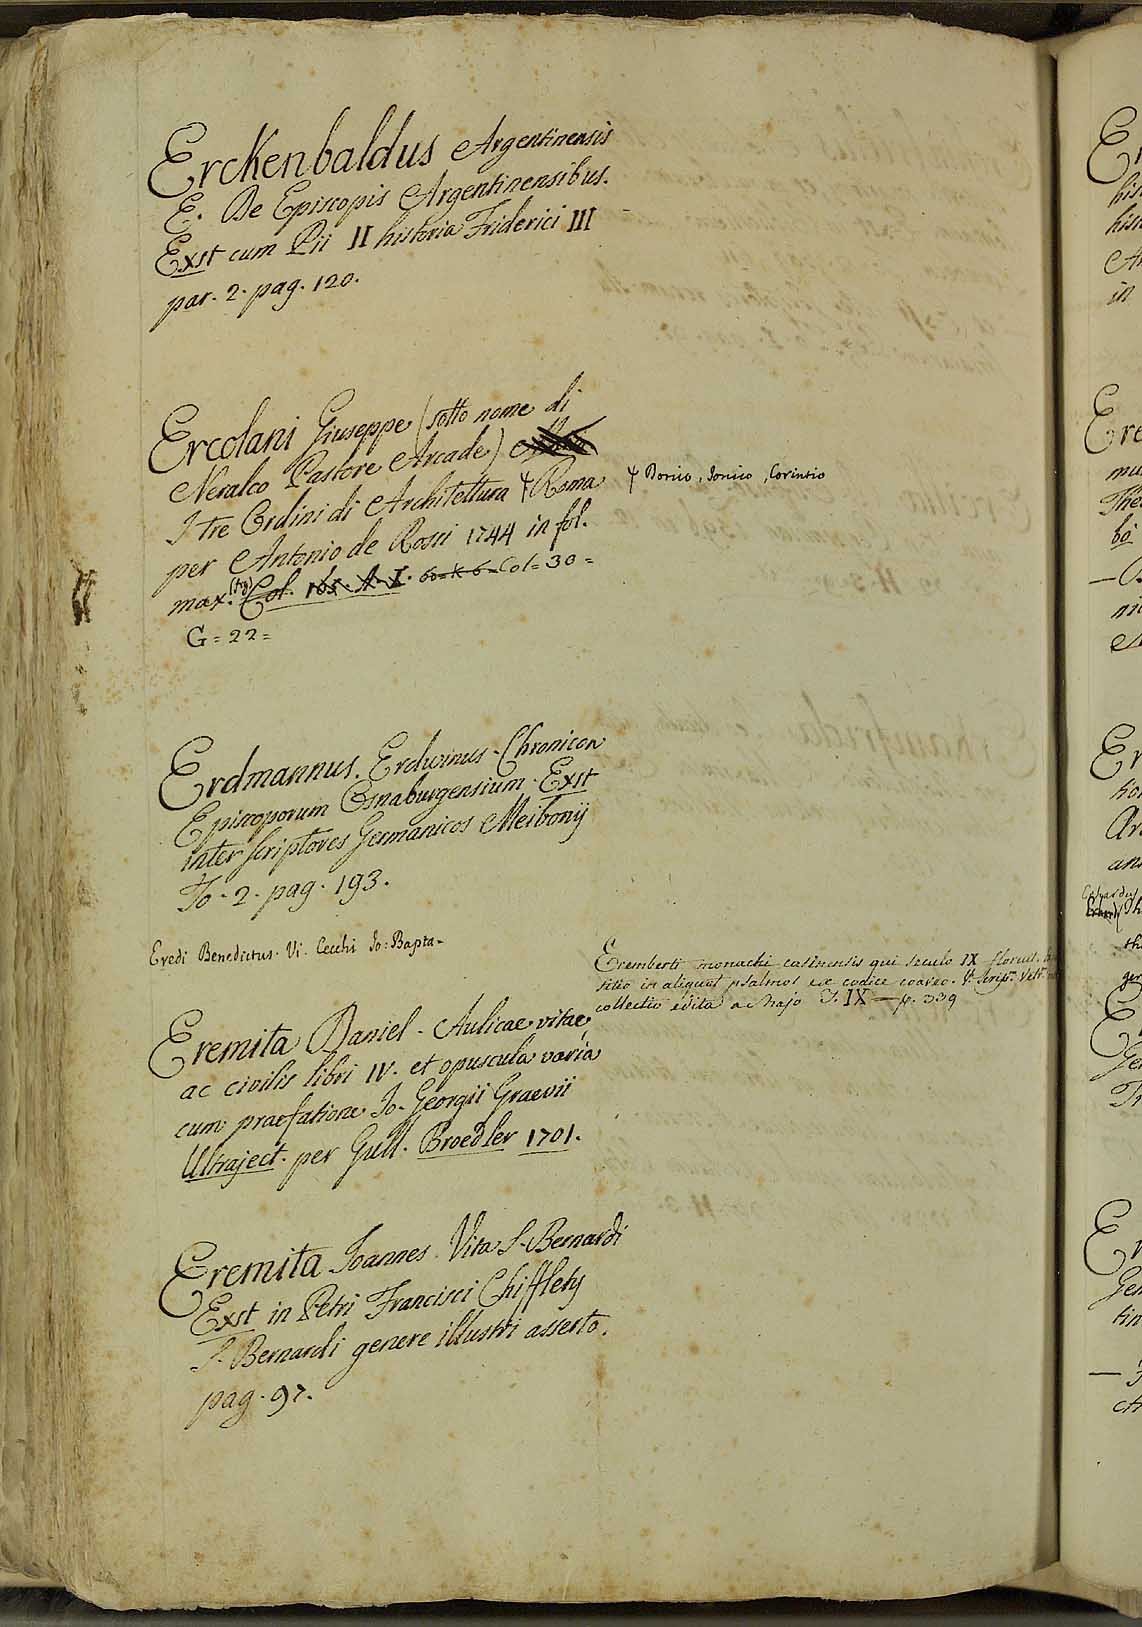 Erckenbaldus Argentinensis
E. De Episcopis Argentinensibus.
Exst cum Pii II historia Friderici III
par. 2. pag. 120.
Ercolani Giuseppe (sotto nome di
Neralco Pastore Arcade)
I tre Ordini di Architettura Ɥ Roma
Ɥ Dorico, Jonico, Corintio
per Antonio de Rossi 1744 in fol.
max. (fig) Col. 165. A. I. 60 = K 6 = Col = 30 =
G = 22 =
Erdmannus. Erdwinus. Chronicon
Episcoporum Osnaburgensium. Exst
inter scriptores Germanicos Meibonij
To. 2. pag. 193.
Eredi Benedictus. Vi. Cecchi Jo: Bapta.
Eremberti monachi casinensis qui seculo IX floruit.
sitio in aliquot psalmos ex codice coaevo. V. Script. Vett.
collectio edita a Majo T. IX — p. 339
Eremita Daniel. Aulicae vitae,
ac civilis libri IV. et opuscula varia
cum praefatione Jo. Georgii Graevii
Ultraject. per Gull. Broedler 1701.
Eremita Joannes. Vita S. Bernardi
Exst in Petri Francisci Chiffletij
S. Bernardi genere illustri asserto.
pag. 97.